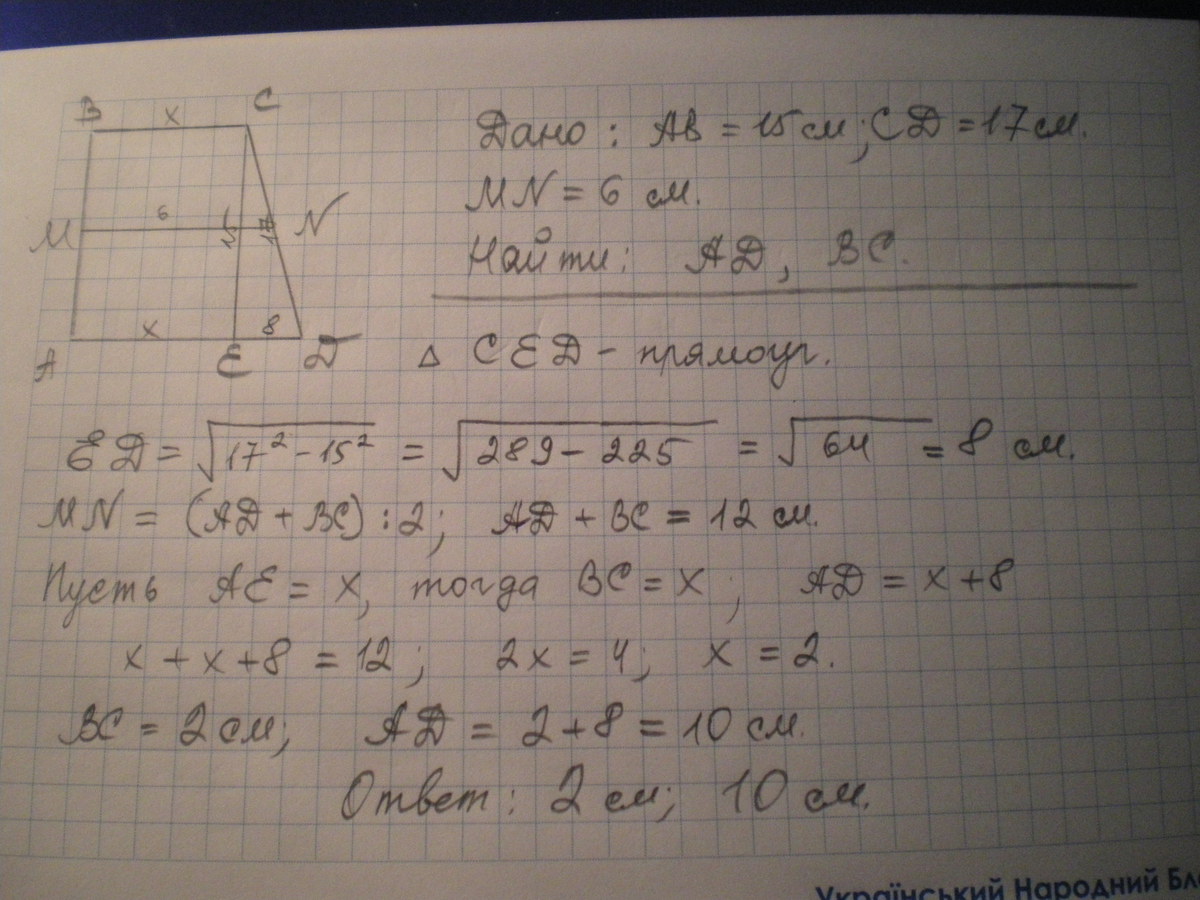 B x C
Дано: AB = 15 см; CD = 17 см.
M 6 15 17 N
MN = 6 см.
Найти: AD, BC.
A x E 8 D
Δ CED - прямоуг.
ED = √17² - 15² = √289 - 225 = √64 = 8 см.
MN = (AD + BC) : 2; AD + BC = 12 см.
Пусть AE = x, тогда BC = x; AD = x + 8
x + x + 8 = 12; 2x = 4; x = 2.
BC = 2 см; AD = 2 + 8 = 10 см.
Ответ: 2 см; 10 см.
Український Народний